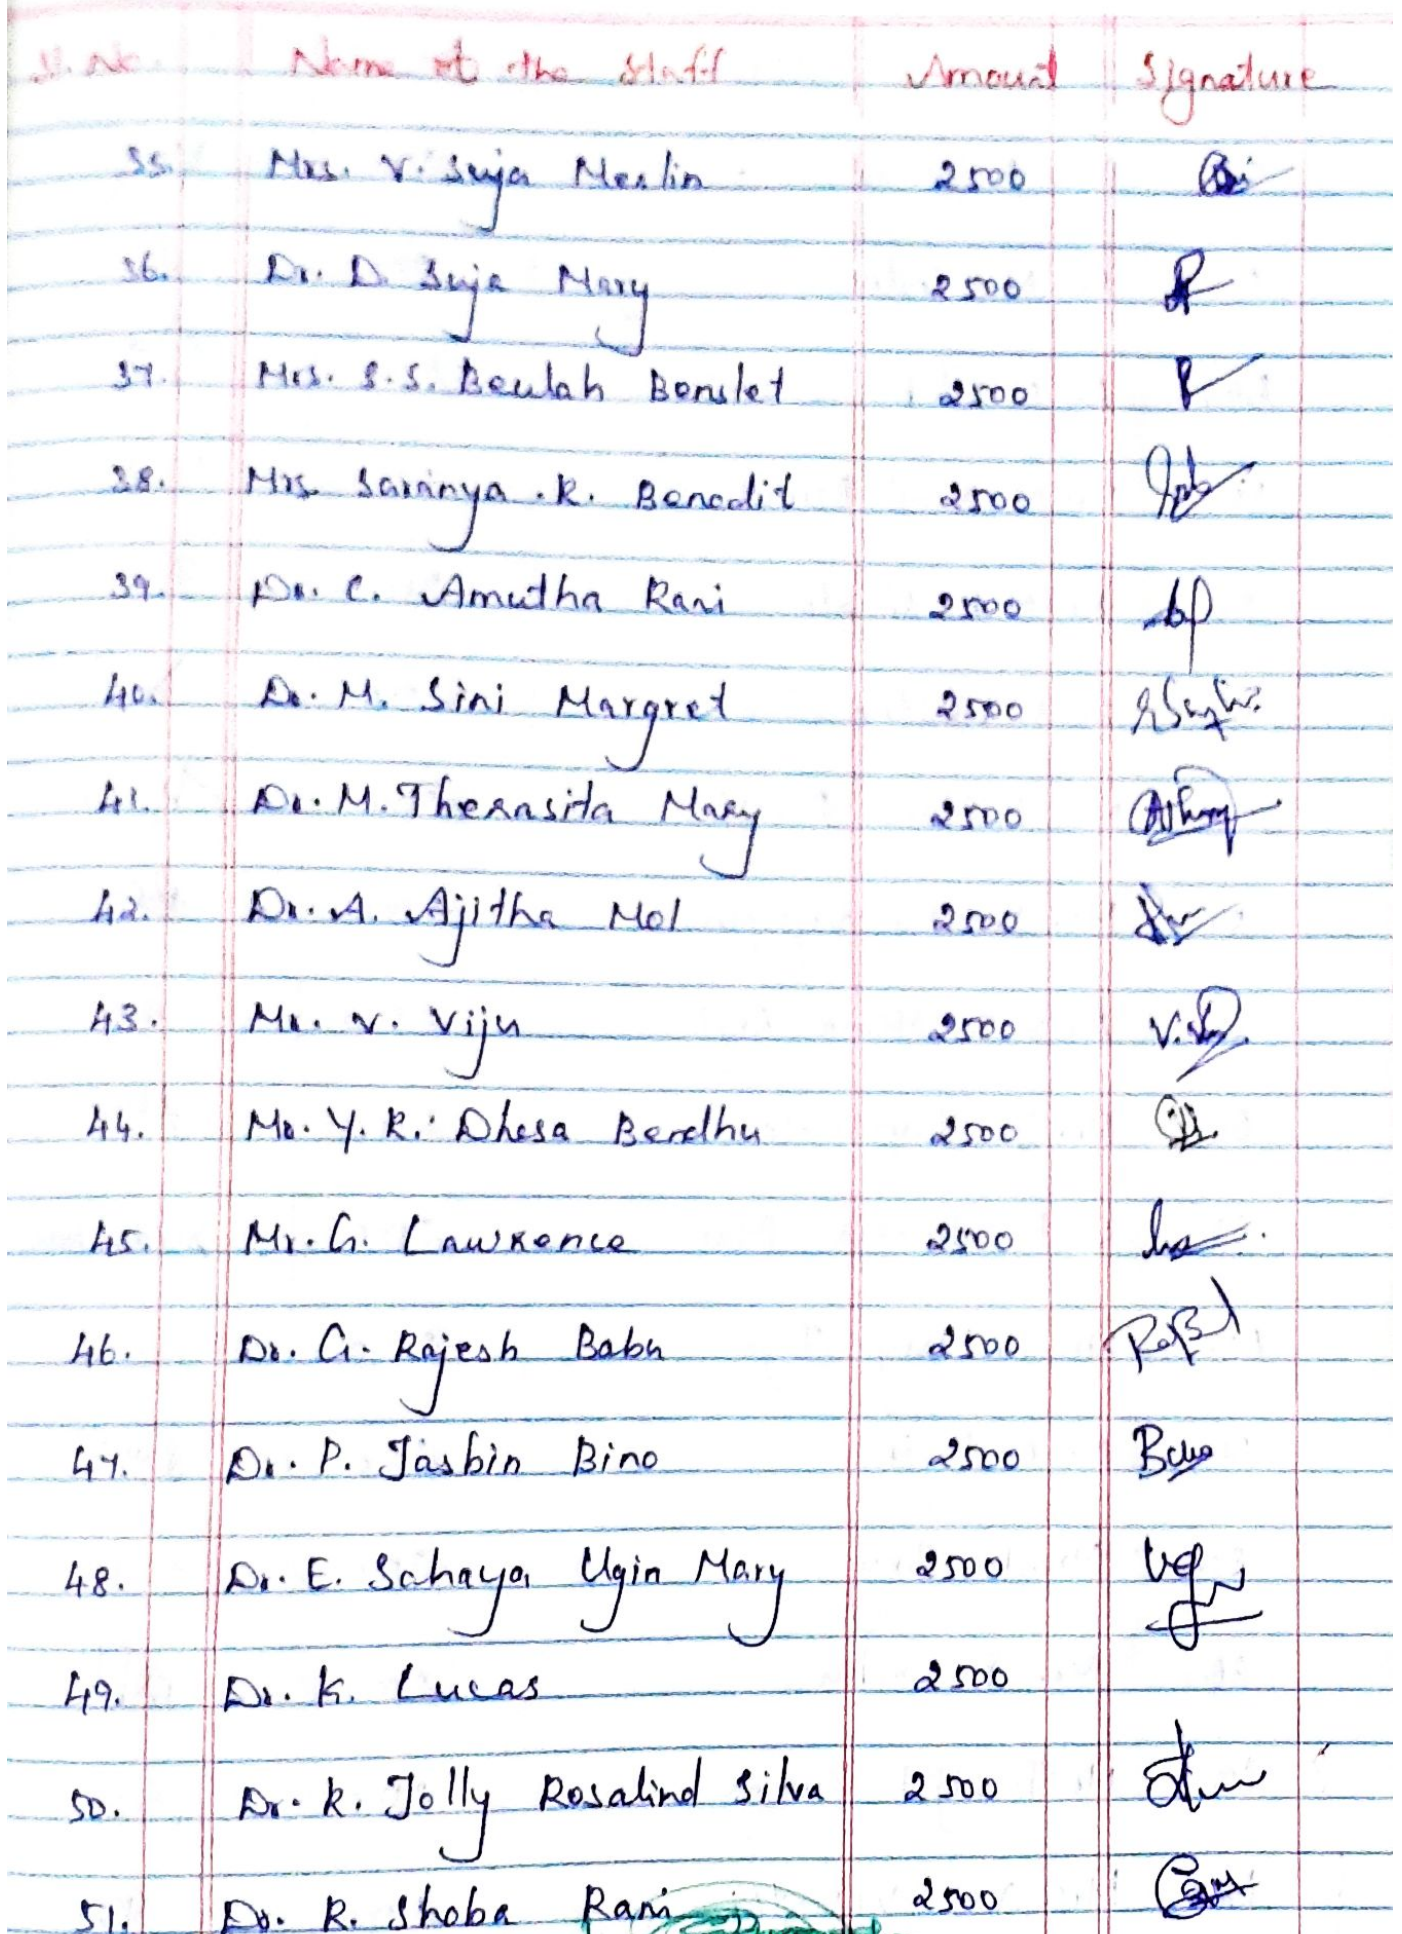 Sl. No. Name of the Staff Amount Signature
35. Mrs. V. Suja Merlin 2500
36. Dr. D. Suja Mary 2500
37. Mrs. S.S. Beulah Benslet 2500
38. Mrs. Saranya .R. Benedit 2500
39. Dr. C. Amutha Rani 2500
40. Dr. M. Sini Margret 2500
41. Dr. M. Therasita Mary 2500
42. Dr. A. Ajitha Mol 2500
43. Mr. V. Viju 2500
44. Mr. Y. R. Dhesa Bendhu 2500
45. Mr. G. Lawrence 2500
46. Dr. G. Rajesh Babu 2500
47. Dr. P. Jasbin Bino 2500
48. Dr. E. Sahaya Ugin Mary 2500
49. Dr. K. Lucas 2500
50. Dr. R. Jolly Rosalind Silva 2500
51. Dr. R. Shoba Rani 2500